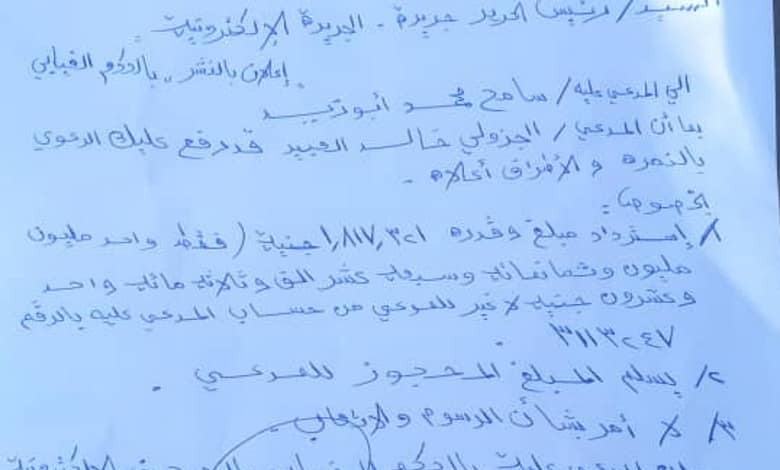 السيد / رئيس تحرير جريدة - الجريدة الإلكترونية
إعلان بالنشر " بالحكم الغيابي "
الي المدعي عليه / سامح محمد أبوزيد
بما أن المدعي / الجزولي خالد العبيد قد رفع عليك الدعوي
بالنمره و الأطراف أعلاه .
بخصوص :
١/ إسترداد مبلغ وقدره ١,٨١٧,٣٢١ جنية ( فقط واحد مليون
مليون وثمانمائة وسبعة عشر الف وثلاثة مائة واحد
وعشرون جنية لا غير للمدعي من حساب المدعي عليه بالرقم
٣١١٣٢٤٧ .
٢/ يسلم المبلغ المحجوز للمدعي .
٣/ لا أمر بشأن الرسوم والاتعاب .